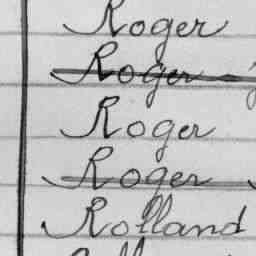 Roger
Roger
Roger
Roger
Rolland